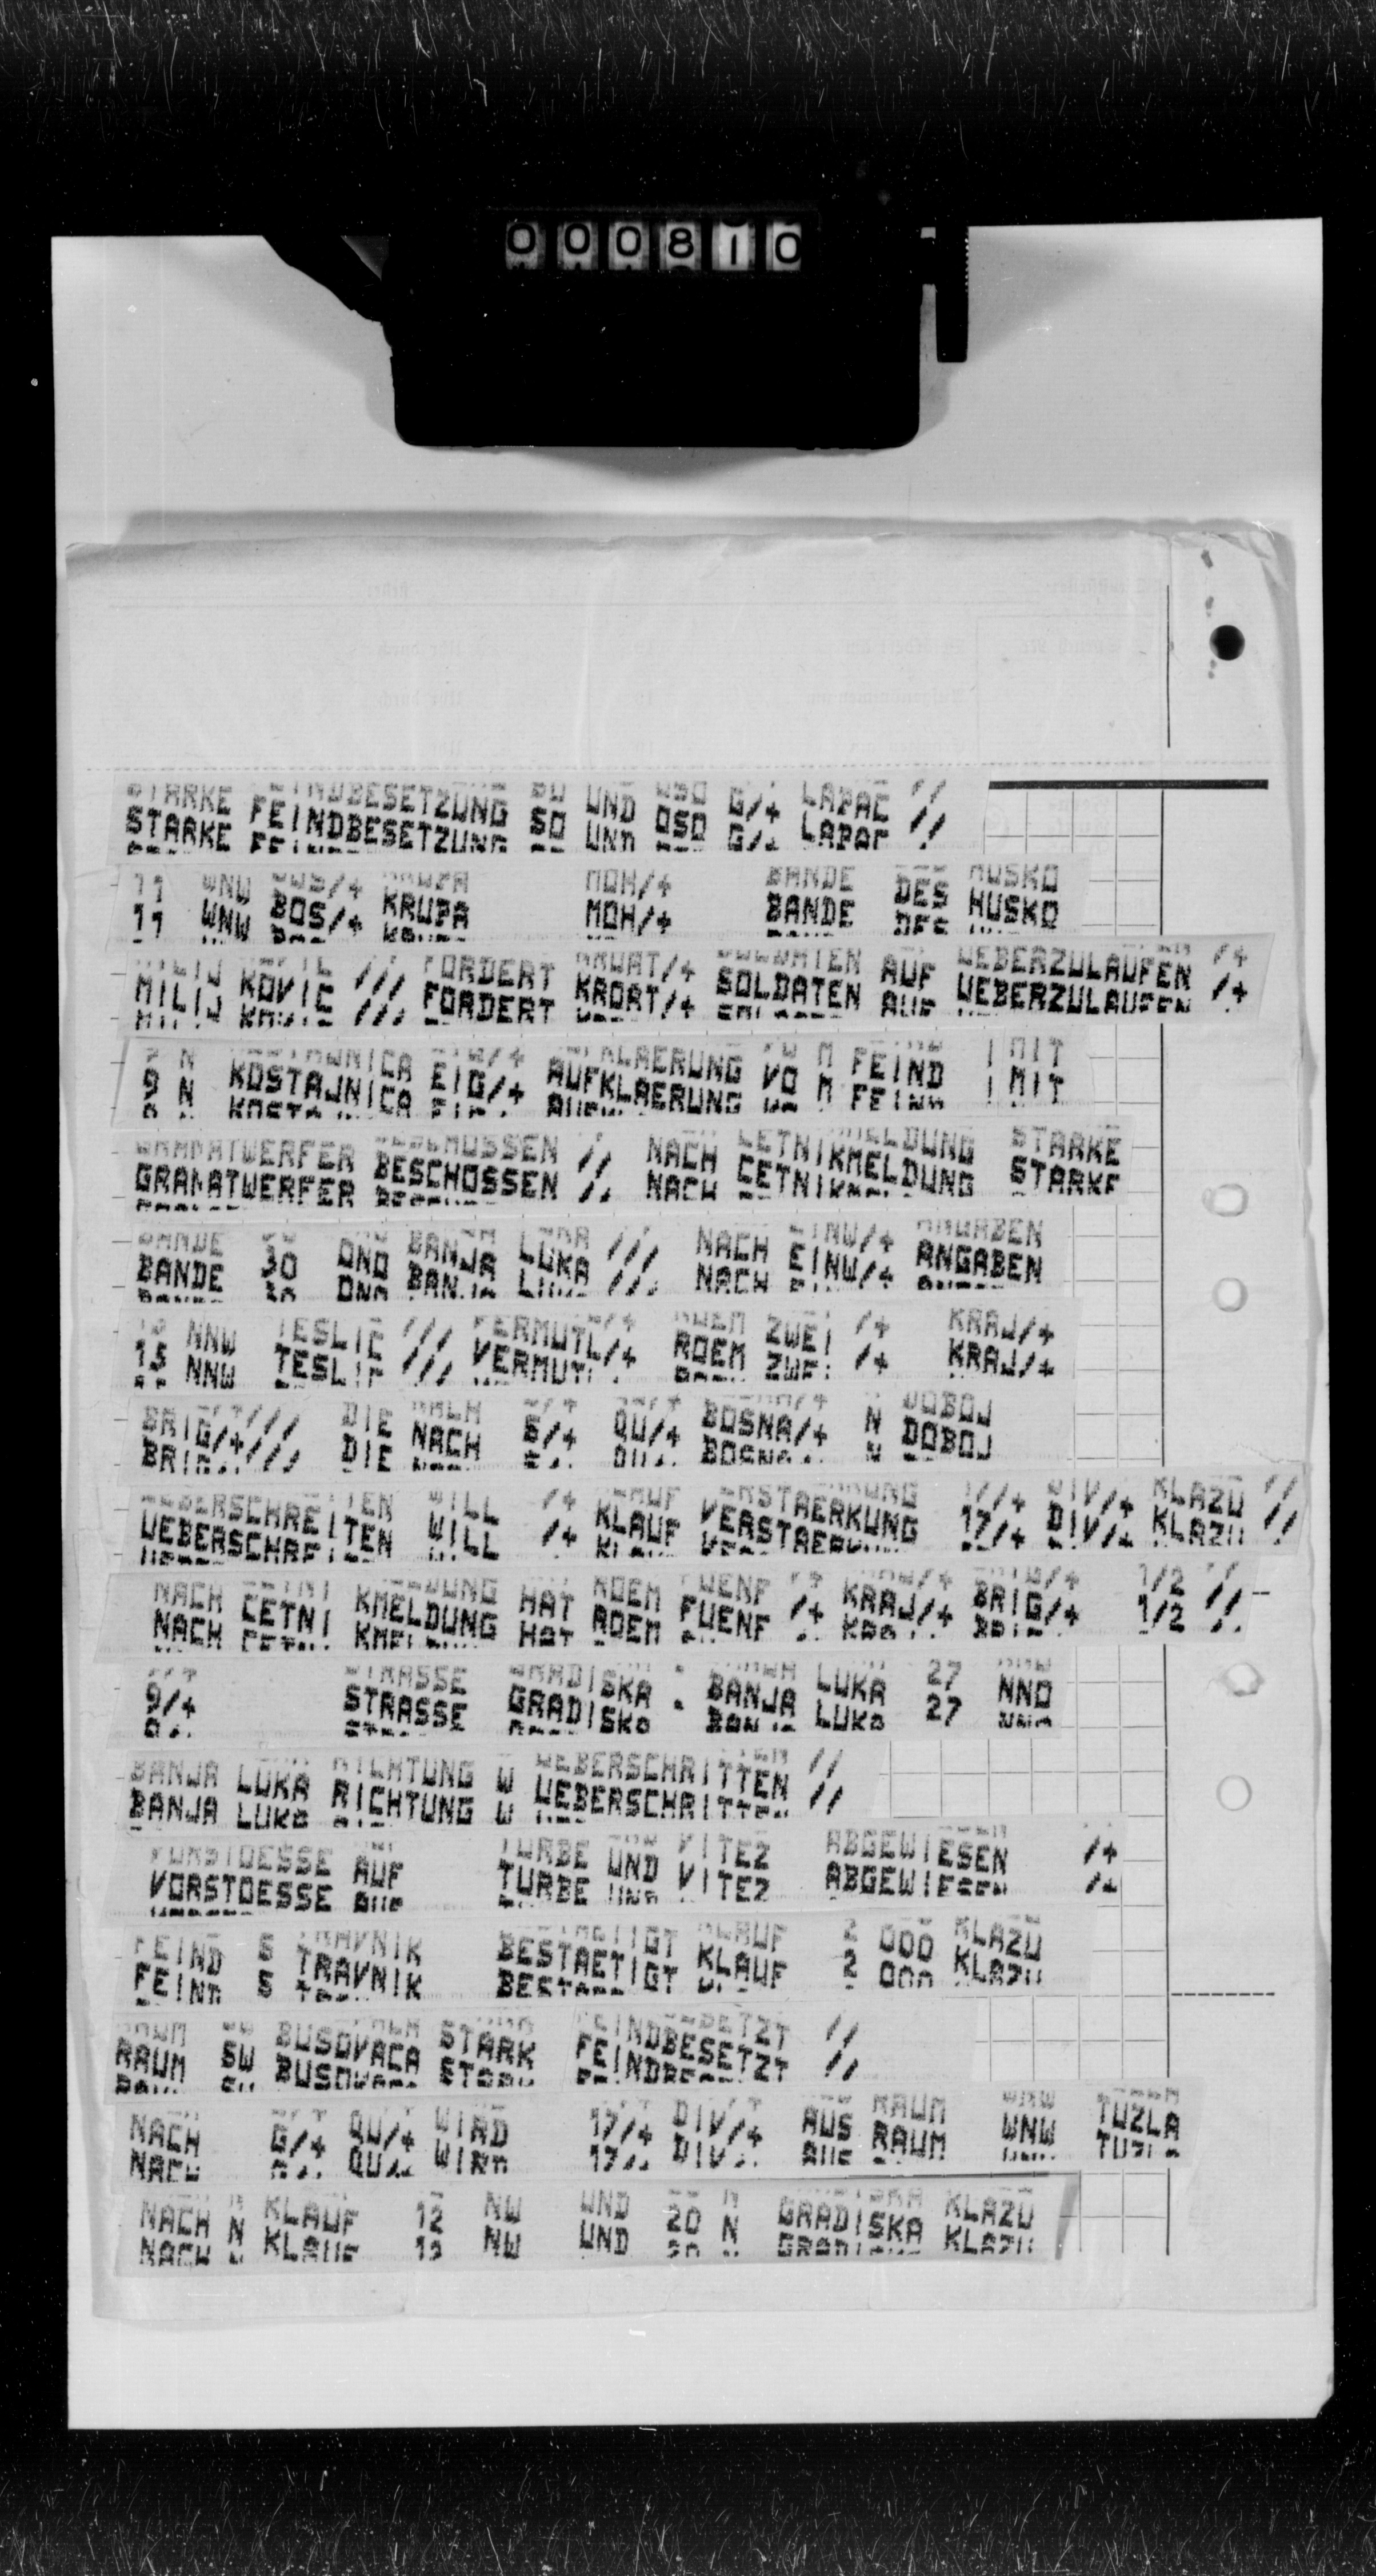 000810
STARKE FEINDBESETZUNG SO UND OSO G/+ LAPAC //
11 WNW BOS/+ KRUPA MOH/+ BANDE DES HUSKO
MILIJ KOVIC /// FORDERT KROAT/+ SOLDATEN AUF UEBERZULAUFEN /+
9 N KOSTAJNICA EIG/+ AUFKLAERUNG VO M FEIND MIT
GRANATWERFER BESCHOSSEN // NACH CETNIKMELDUNG STARKE
BANDE 30 ONO BANJA LUKA /// NACH EINW/+ ANGABEN
15 NNW TESLIC /// VERMUTL/+ ROEM ZWEI /+ KRAJ/+
BRIG/+/// DIE NACH G/+ QU/+ BOSNA/+ N DOBOJ
UEBERSCHREITEN WILL /+ KLAUF VERSTAERKUNG 17/+ DIV/+ KLAZU //
NACH CETNI KMELDUNG HAT ROEM FUENF /+ KRAJ/+ BRIG/+ 1/2 //
9/+ STRASSE GRADISKA - BANJA LUKA 27 NNO
BANJA LUKA RICHTUNG W UEBERSCHRITTEN //
VORSTOESSE AUF TURBE UND VITEZ ABGEWIESEN /+
FEIND S TRAVNIK BESTAETIGT KLAUF 2 000 KLAZU
RAUM SW BUSOVACA STARK FEINDBESETZT //
NACH G/+ QU/+ WIRD 17/+ DIV/+ AUS RAUM WNW TUZLA
NACH N KLAUF 12 NW UND 20 N GRADISKA KLAZU